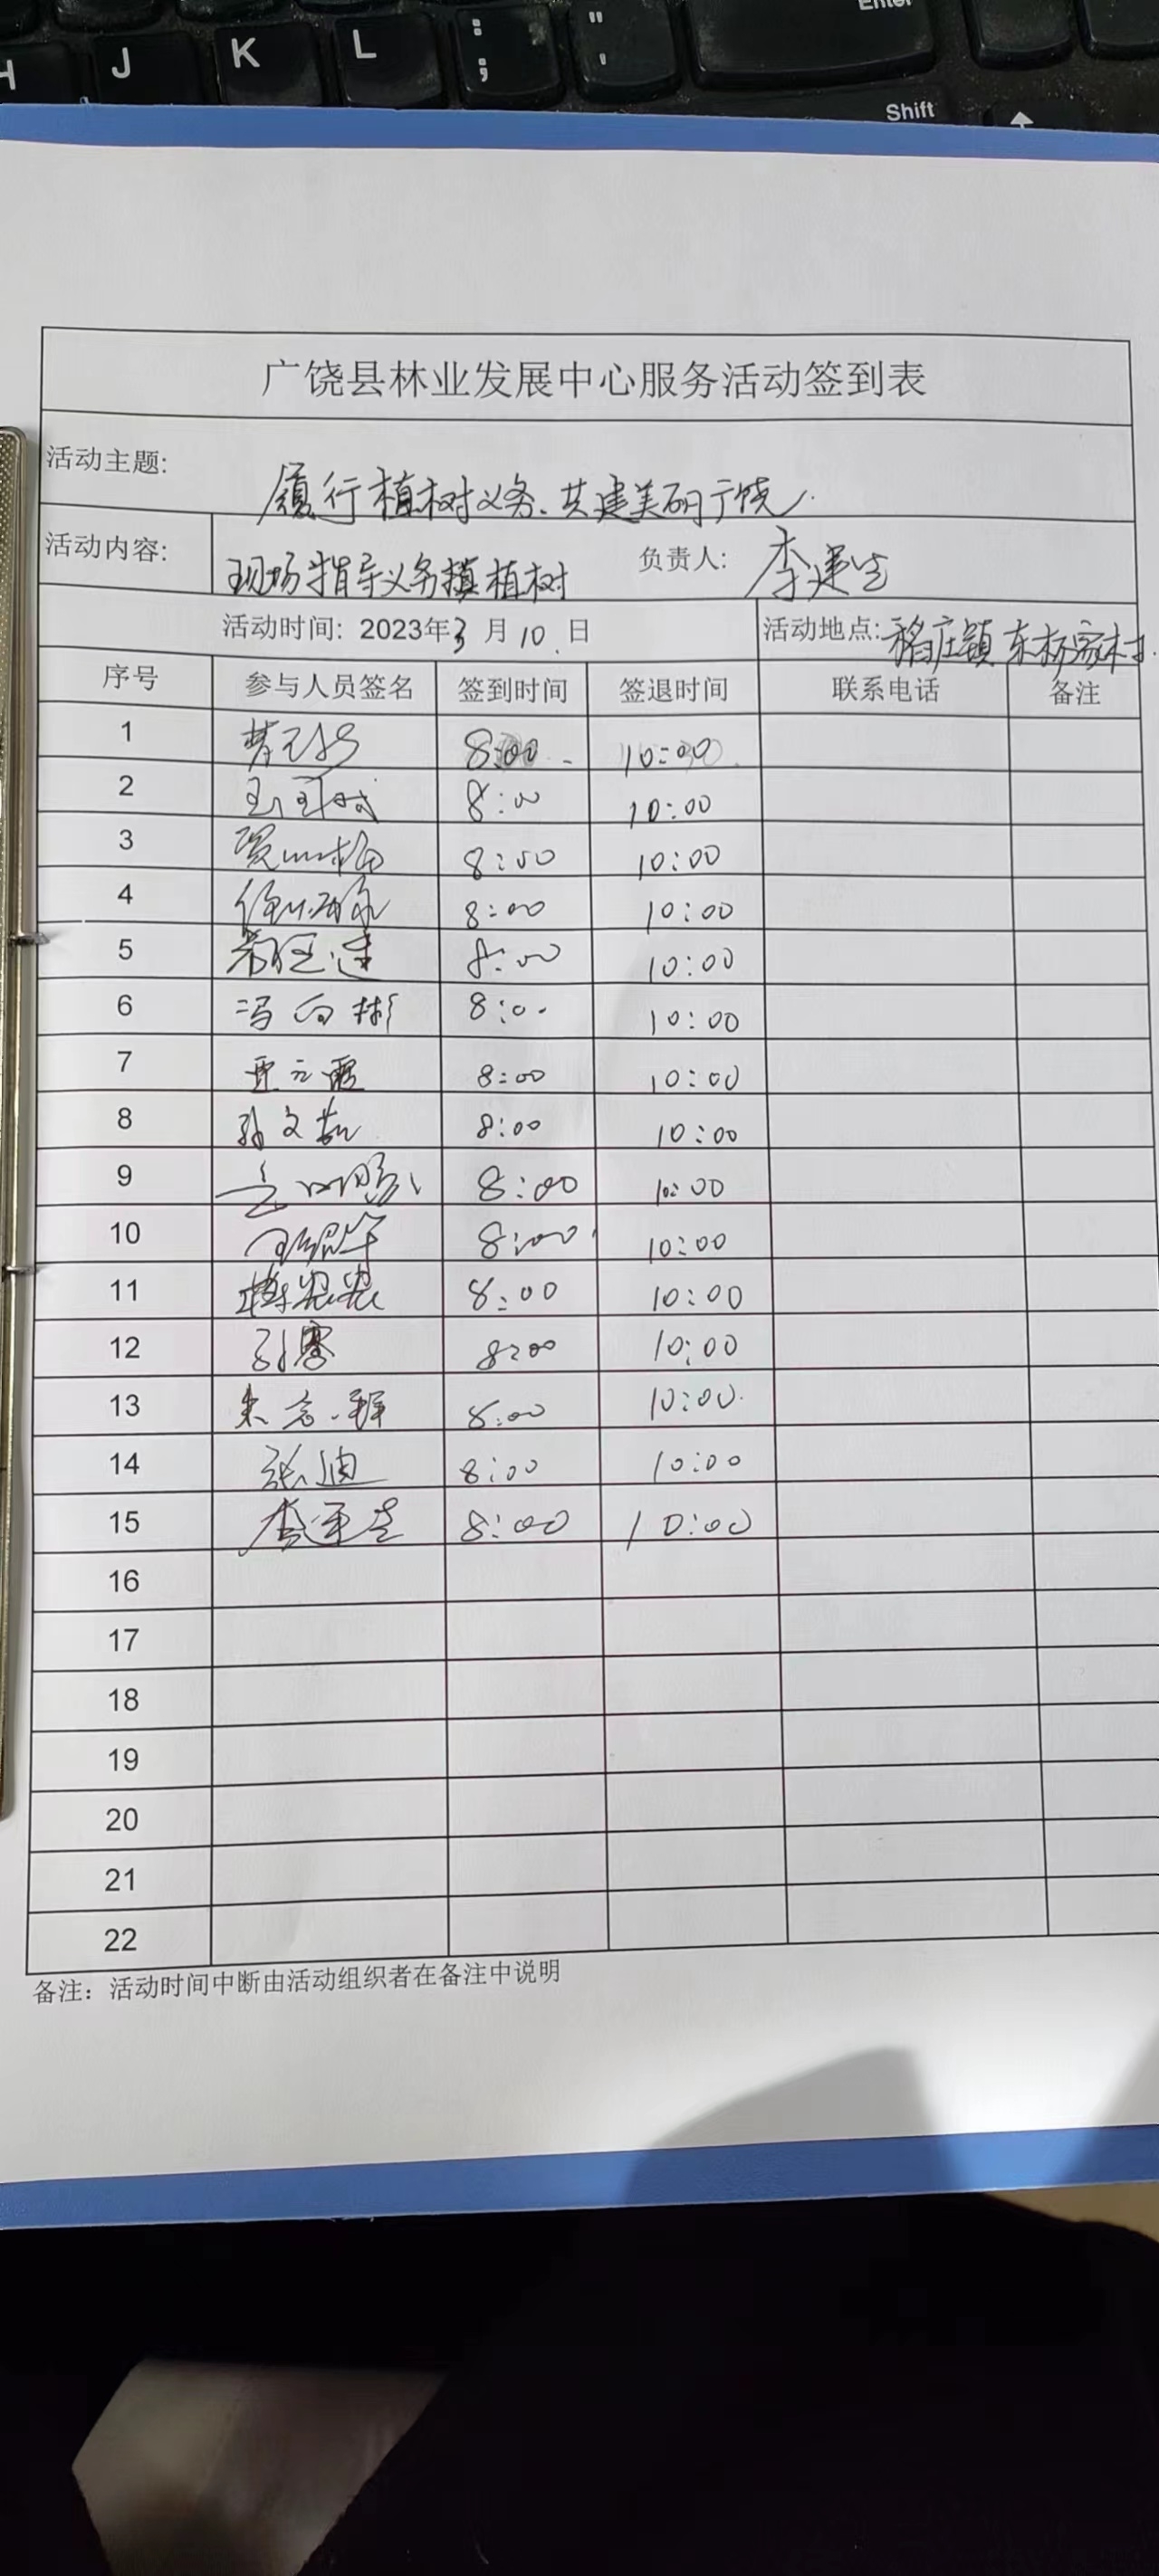 Enter
H J K L : ; " '
Shift
广饶县林业发展中心服务活动签到表
活动主题: 履行植树义务、共建美丽广饶
活动内容: 现场指导义务植树 负责人: 李建生
活动时间: 2023年3月10日 活动地点: 稻庄镇东杨家村
序号 参与人员签名 签到时间 签退时间 联系电话 备注
1 8:00 10:00
2 8:00 10:00
3 8:00 10:00
4 8:00 10:00
5 8:00 10:00
6 冯向彬 8:0. 10:00
7 8:00 10:00
8 孙文 8:00 10:00
9 8:00 10:00
10 8:00 10:00
11 8:00 10:00
12 8:00 10:00
13 朱 8:00 10:00
14 张迪 8:00 10:00
15 8:00 10:00
16
17
18
19
20
21
22
备注：活动时间中断由活动组织者在备注中说明